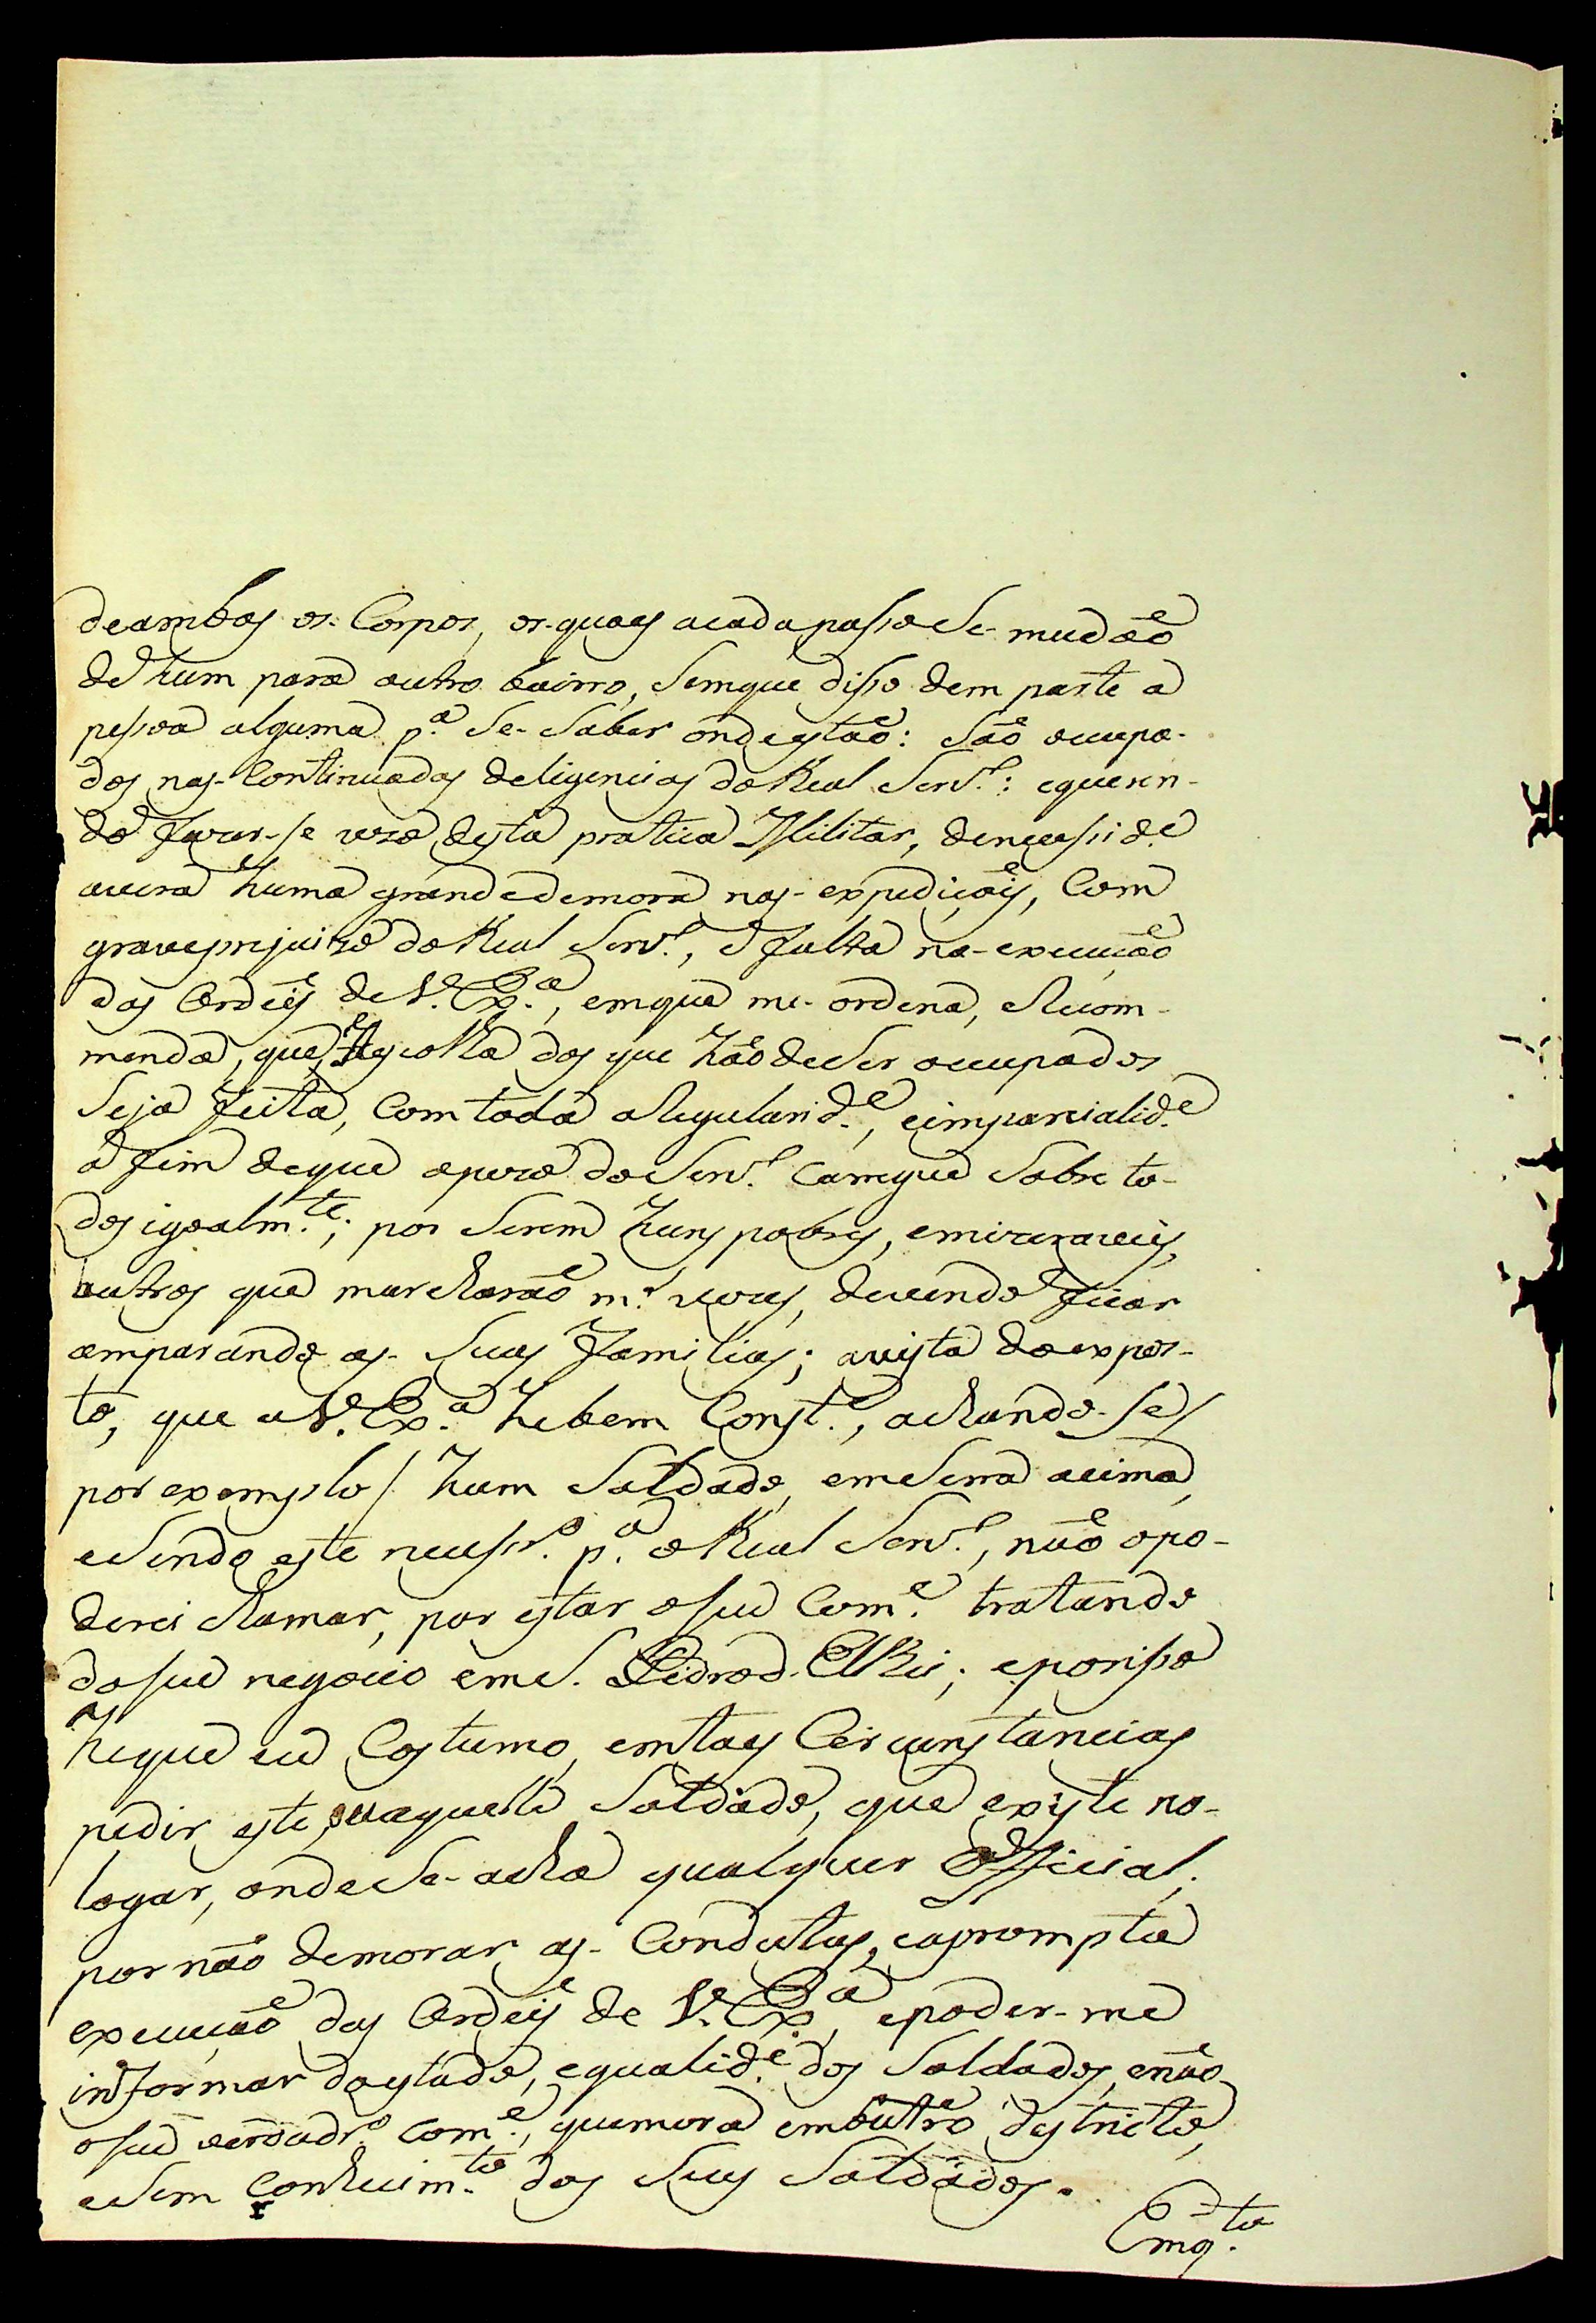 deambos os Corpos, os-quaes acadapasso Se-mudaõ
de hum para outro bairro, Semque disso dem parte a
pessoa alguma p.ª Se-Saber ondeestaõ: Saõ occupa-
dos nas-Continuadas deligencias do Real Serv.º: equeren-
do fazer-se uzo desta pratica Militar, denecessid.e
avera huma grande demora nas-expediçoẽs, Com
graveprejuizo do Real Serv.º, e falta na-execuçaõ
das Ordeñs de V. Ex.ª, emque me-ordena, eRecom-
menda, que a escolha dos que haõ deSer occupados
Seja feita, Comtoda aRegularid.e, eimparcialid.e
a fim deque opezo do Serv.º Carregue Sobre to-
dos igoalm.te; por Serem huns pobres, emizeraveis,
outros que marcharaõ m.tas vezes, devendo ficar
amparando as-Suas Familias; avista doexpos-
to, que a V. Ex.ª hebem Const.e, achando-se/
por exemplo/ hum Soldado, emSerra acima,
eSendo este necessr.º p.ª oReal Serv.º, naõ opo-
derei chamar, por estar oseu Com.e tratando
doseu negocio emS. Pedro d'ElRei; eporisso
heque eu Costumo, emtaes Circunstancias
pedir este, ouaquelle Soldado, que existe no-
logar, ondeSe-acha qualquer Official,
por naõ demorar as-Condutas, eaprompta
execuçaõ das Ordeñs de V. Ex.ª, epoder-me
informar doestado, equalid.e dos Soldados, enaõ
oseu verdadr.º Com.e, quemora emoutro destricto,
eSem Conhecim.to dos Seus Soldados.
Emq.to